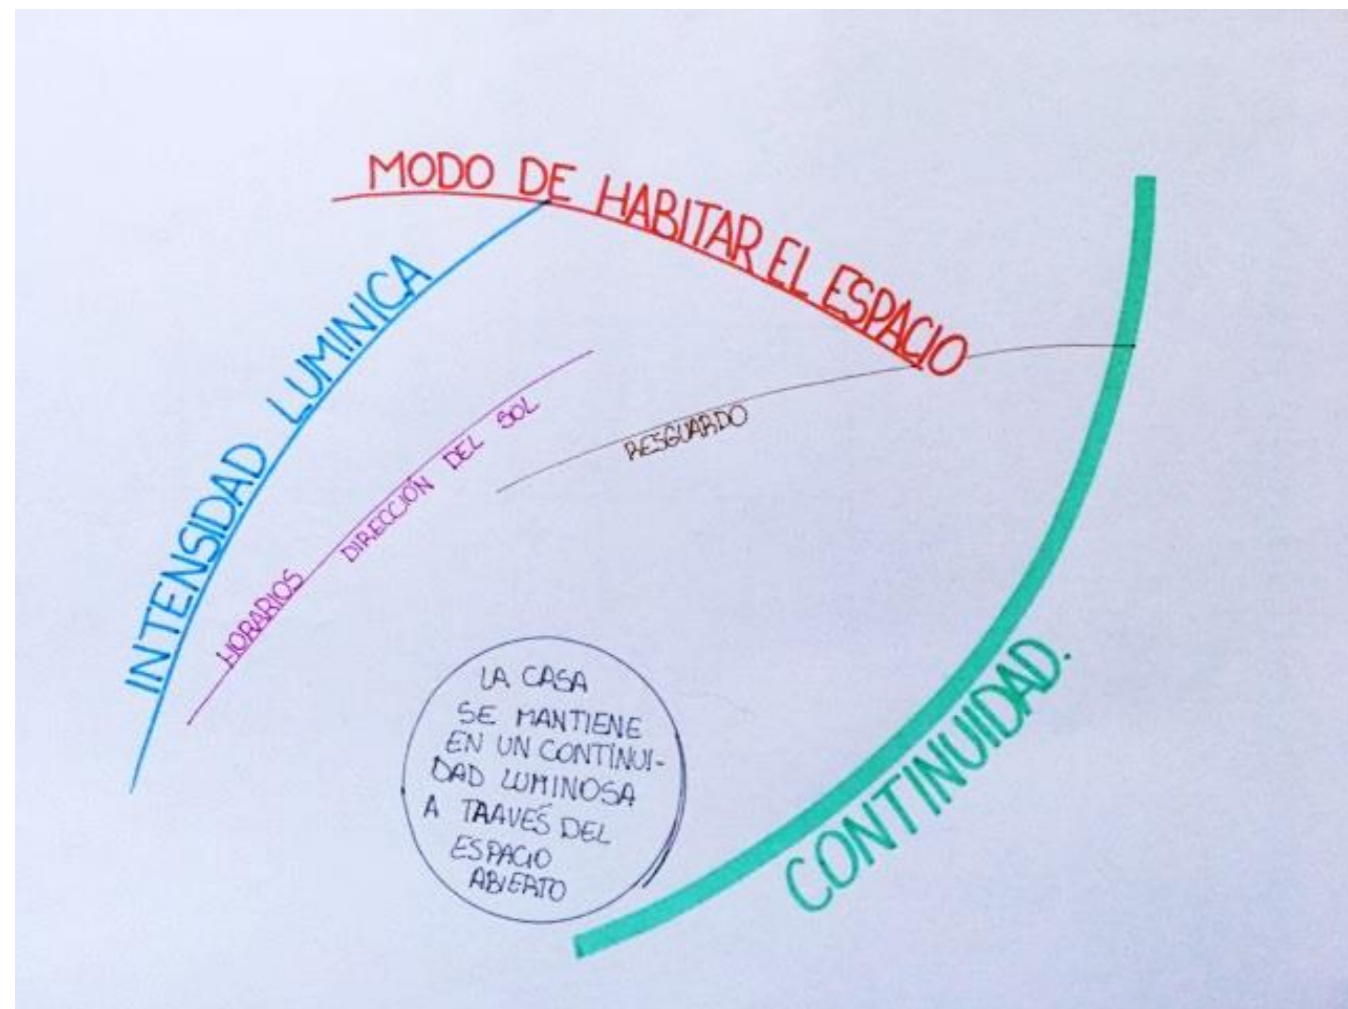 MODO DE HABITAR EL ESPACIO
INTENSIDAD LUMINICA
HORARIOS DIRECCIÓN DEL SOL
RESGUARDO
LA CASA
SE MANTIENE
EN UN CONTINUI-
DAD LUMINOSA
A TRAVÉS DEL
ESPACIO
ABIERTO
CONTINUIDAD.